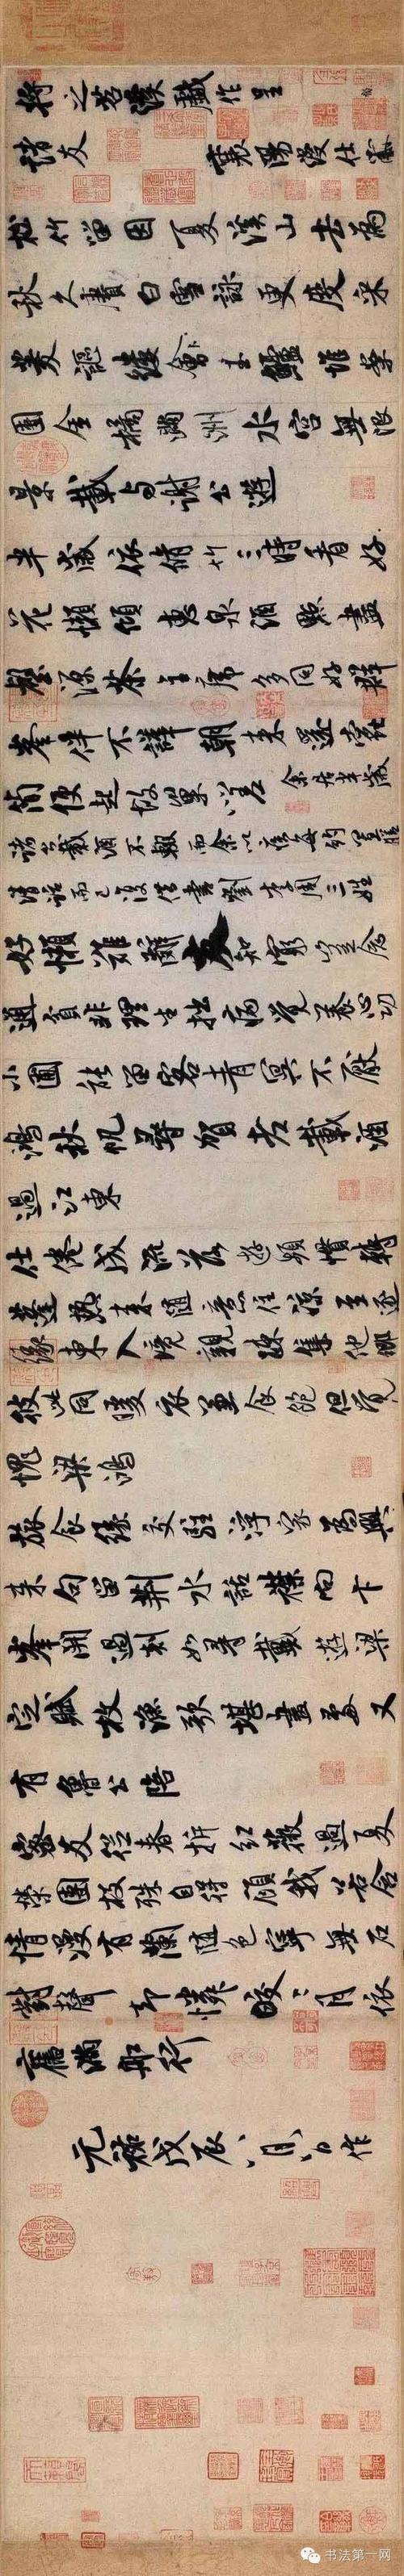 將之苕溪戲作呈
諸友 襄陽漫仕黻
松竹留因夏溪山去為
秋久賡白雪詠更度采
菱謳縷會玉鱸堆案
團金橘滿洲水宮無限
景載與謝公遊
半歲依脩竹三時看好
花懶傾惠泉酒點盡
壑源茶主席多同好群
峰伴不譁朝來還蠹
簡便起故巢嗟 余居半歲
諸公載酒不輟而余以疾每約置膳
清話而已復借書劉李周三姓
好懶難辭友知窮豈念
通貧非理生拙病覺養心功
小圃能留客青冥不厭
鴻秋帆尋賀老載酒
過江東
仕倦成流落遊頻慣轉
蓬熱來隨意住涼至逐
緣東入境親疎集他鄉
彼此同暖衣兼食飽但覺
愧梁鴻
旅食緣交駐浮家為興
來句留荊水話襟向卞
峰開過剡如尋戴遊梁
定賦枚漁歌堪畫處又
有魯公陪
密友從春拆紅薇過夏
榮團枝殊自得顧我若含
情漫有蘭隨色寧無石
對聲却憐皎皎月依
舊滿船行
元祐戊辰八月八日作
书法第一网